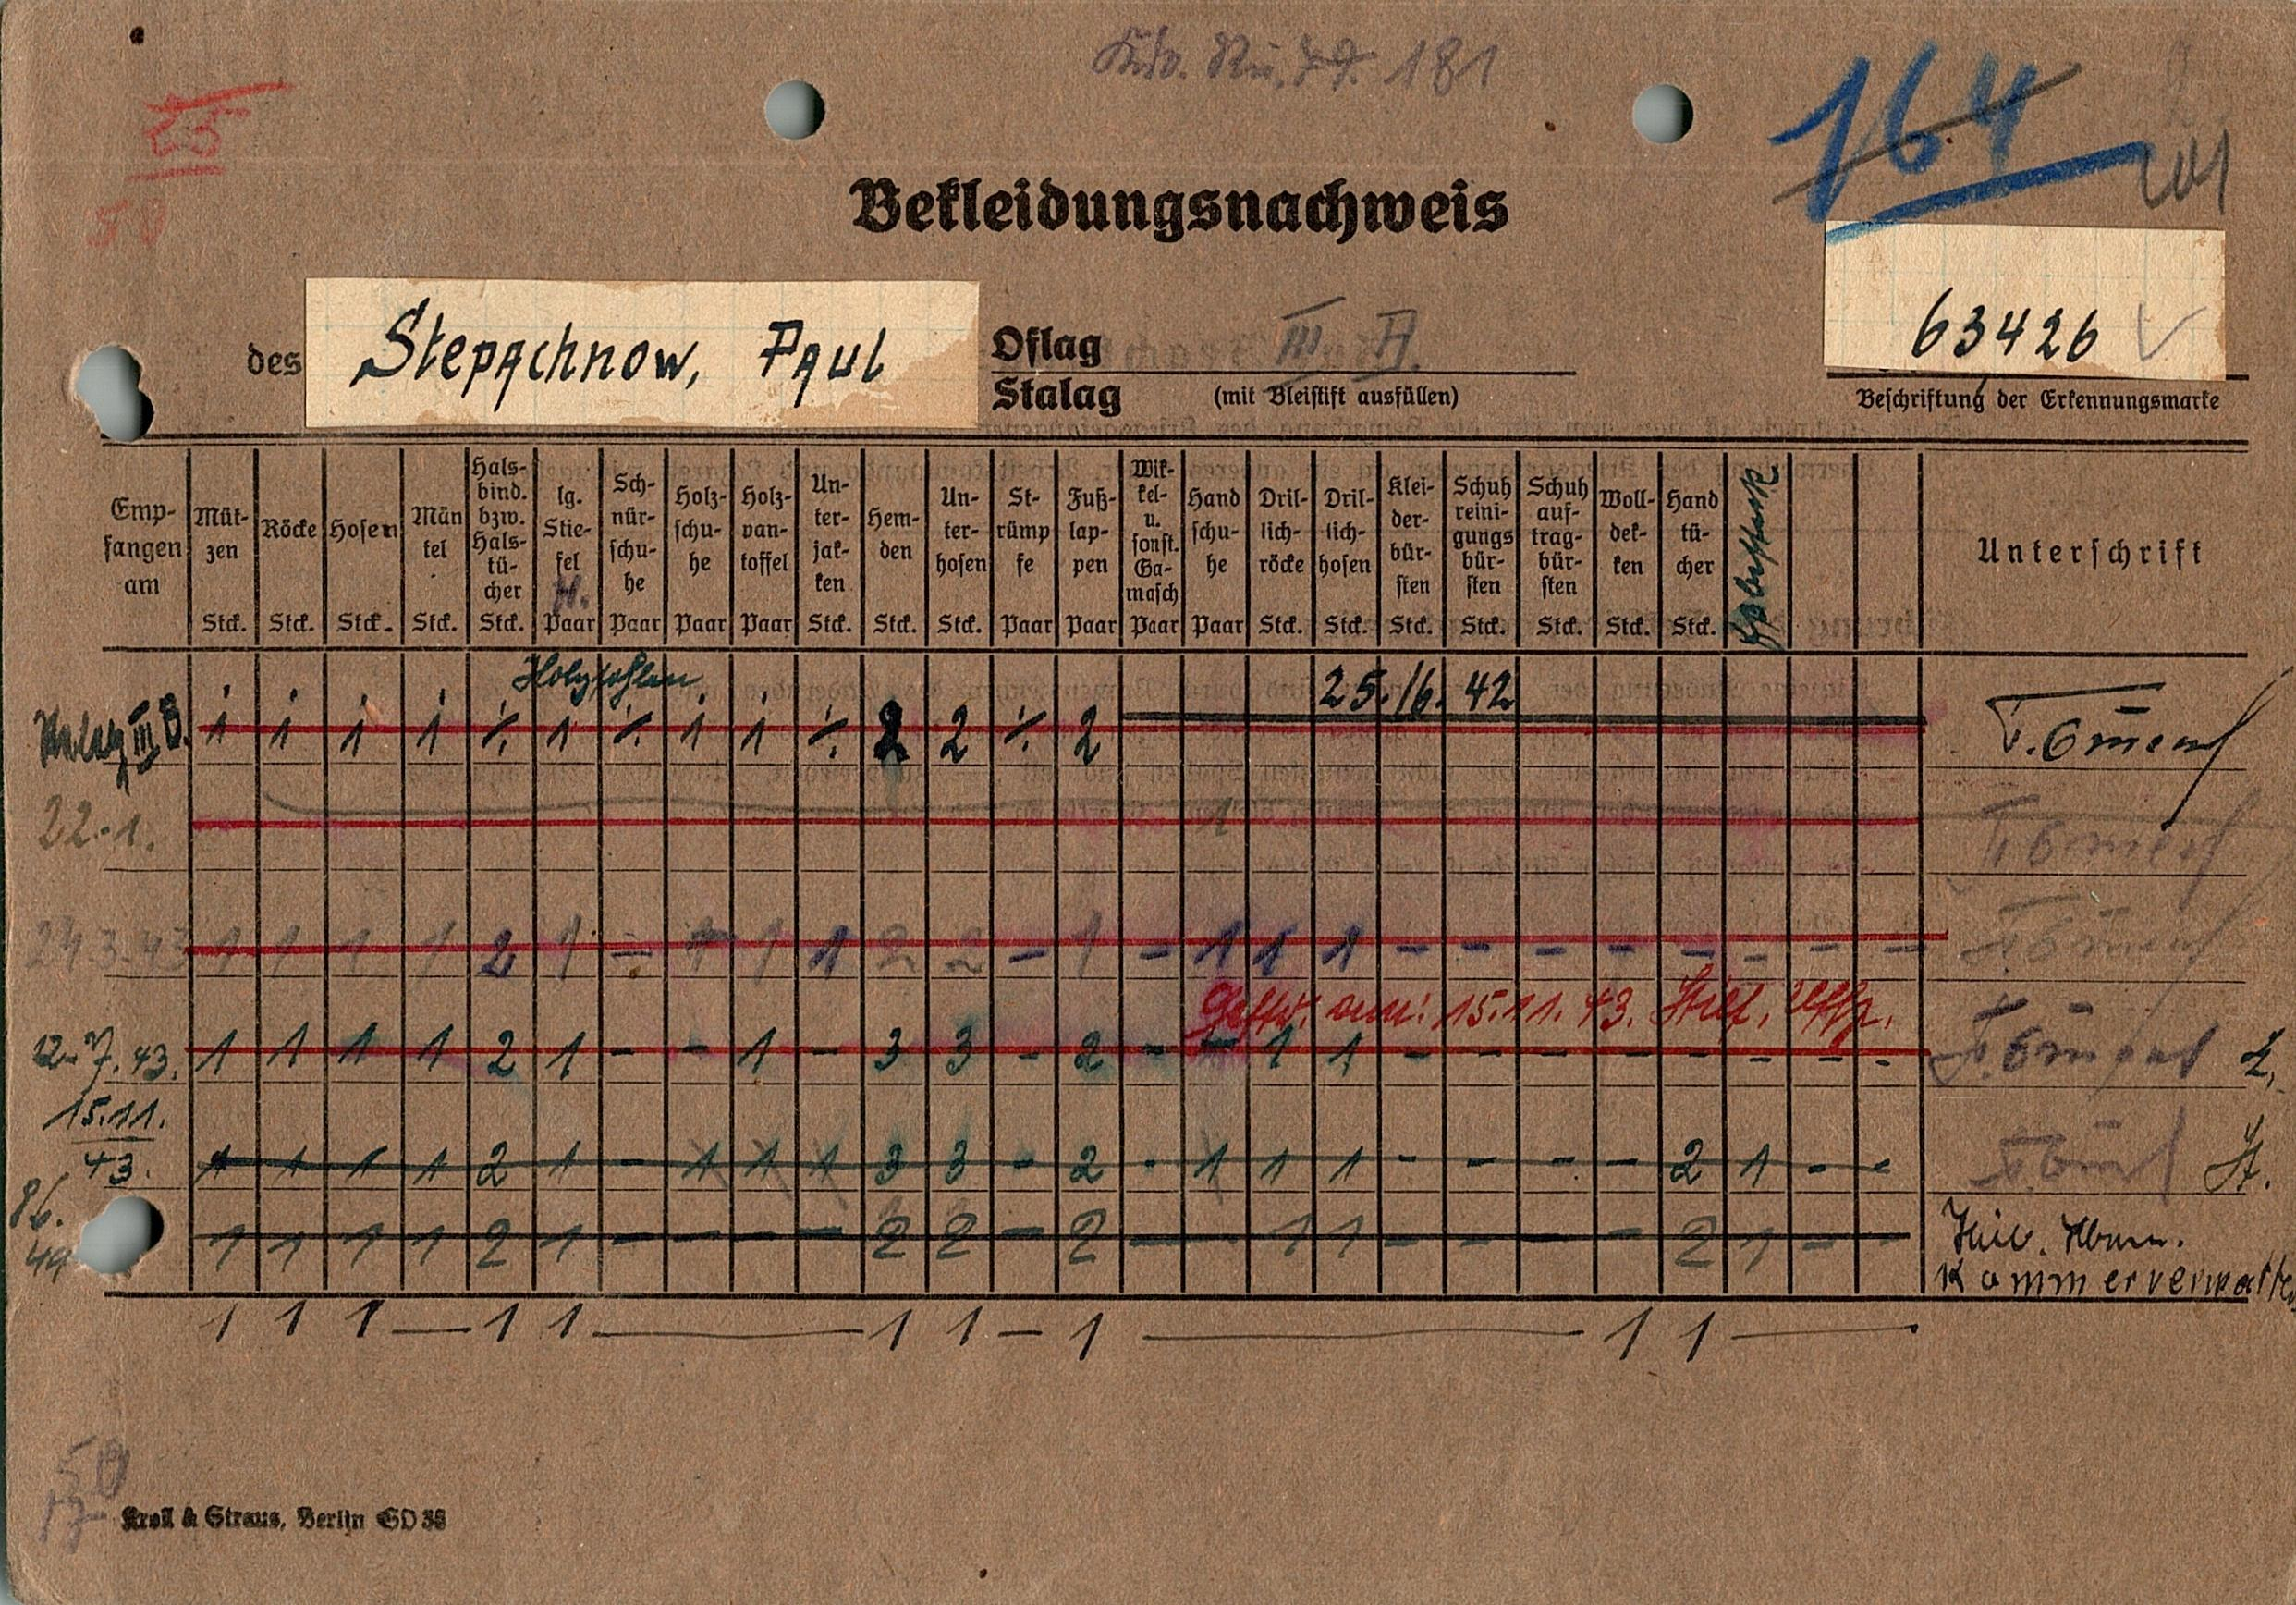 181
164
201
50
Bekleidungsnachweis
des Stepachnow, Paul
Oflag
Stalag
III A.
(mit Bleistift ausfüllen)
63426
Beschriftung der Erkennungsmarke
Empfangen am
Müt-zen Stck.
Röcke Stck.
Hosen Stck.
Män tel Stck.
Hals-bind. bzw. Hals-tü-cher Stck.
lg. Stie-fel H. Paar
Sch-nür-schu-he Paar
Holz-schu-he Paar
Holz-pan-toffel Paar
Un-ter-jak-ken Stck.
Hem-den Stck.
Un-ter-hosen Stck.
St-rümp fe Paar
Fuß-lap-pen Paar
Wik-kel- u. sonst. Ga-masch Paar
Hand schu-he Paar
Dril-lich-röcke Stck.
Dril-lich-hosen Stck.
Klei-der-bür-sten Stck.
Schuh reini-gungs bür-sten Stck.
Schuh auf-trag-bür-sten Stck.
Woll-dek-ken Stck.
Hand tü-cher Stck.
Unterschrift
Holzsohlen
25./6. 42
Stalag III D. 1 1 1 1 ⁒ 1 ⁒ 1 1 ⁒ 2 2 ⁒ 2
22.1. 1
24.3.43 1 1 1 1 2 1 – 1 1 1 2 2 – 1 – 1 1 1 – – – – – – – –
15.11.43.
12.7.43. 1 1 1 1 2 1 – – 1 – 3 3 – 2 – – 1 1 – – – – – – – –
15.11.43. 1 1 1 1 2 1 – 1 1 1 3 3 – 2 – 1 1 1 – – – – 2 1 – –
86.44 1 1 1 1 2 1 – – – – 2 2 – 2 – – 1 1 – – – – 2 1 – –
Kammerverwalter
1 1 1 — 1 1 — 1 1 — 1 — 1 1 —
50
17
Kroll & Straus, Berlin SO 36